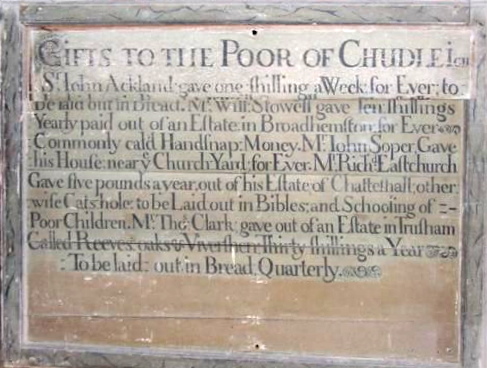 GIFTS TO THE POOR OF CHUDLEIGH
Sr. John Ackland gave one shilling a Week for Ever; to
be laid out in Bread. Mr. Will: Stowell gave Ten shillings
Yearly paid out of an Estate in Broadhemston for Ever
Commonly cald Handsnap: Money. Mr. John Soper, Gave
his House near ye Church Yard for Ever. Mr. Richd: Eastchurch
Gave five pounds a year, out of his Estate of Chatteshall, other
wise Catshole; to be Laid out in Bibles; and Schooling of
Poor Children. Mr. Tho: Clark; gave out of an Estate in Trusham
Called Reeves oaks & Thirty shillings a Year
: To be laid: out in Bread, Quarterly.